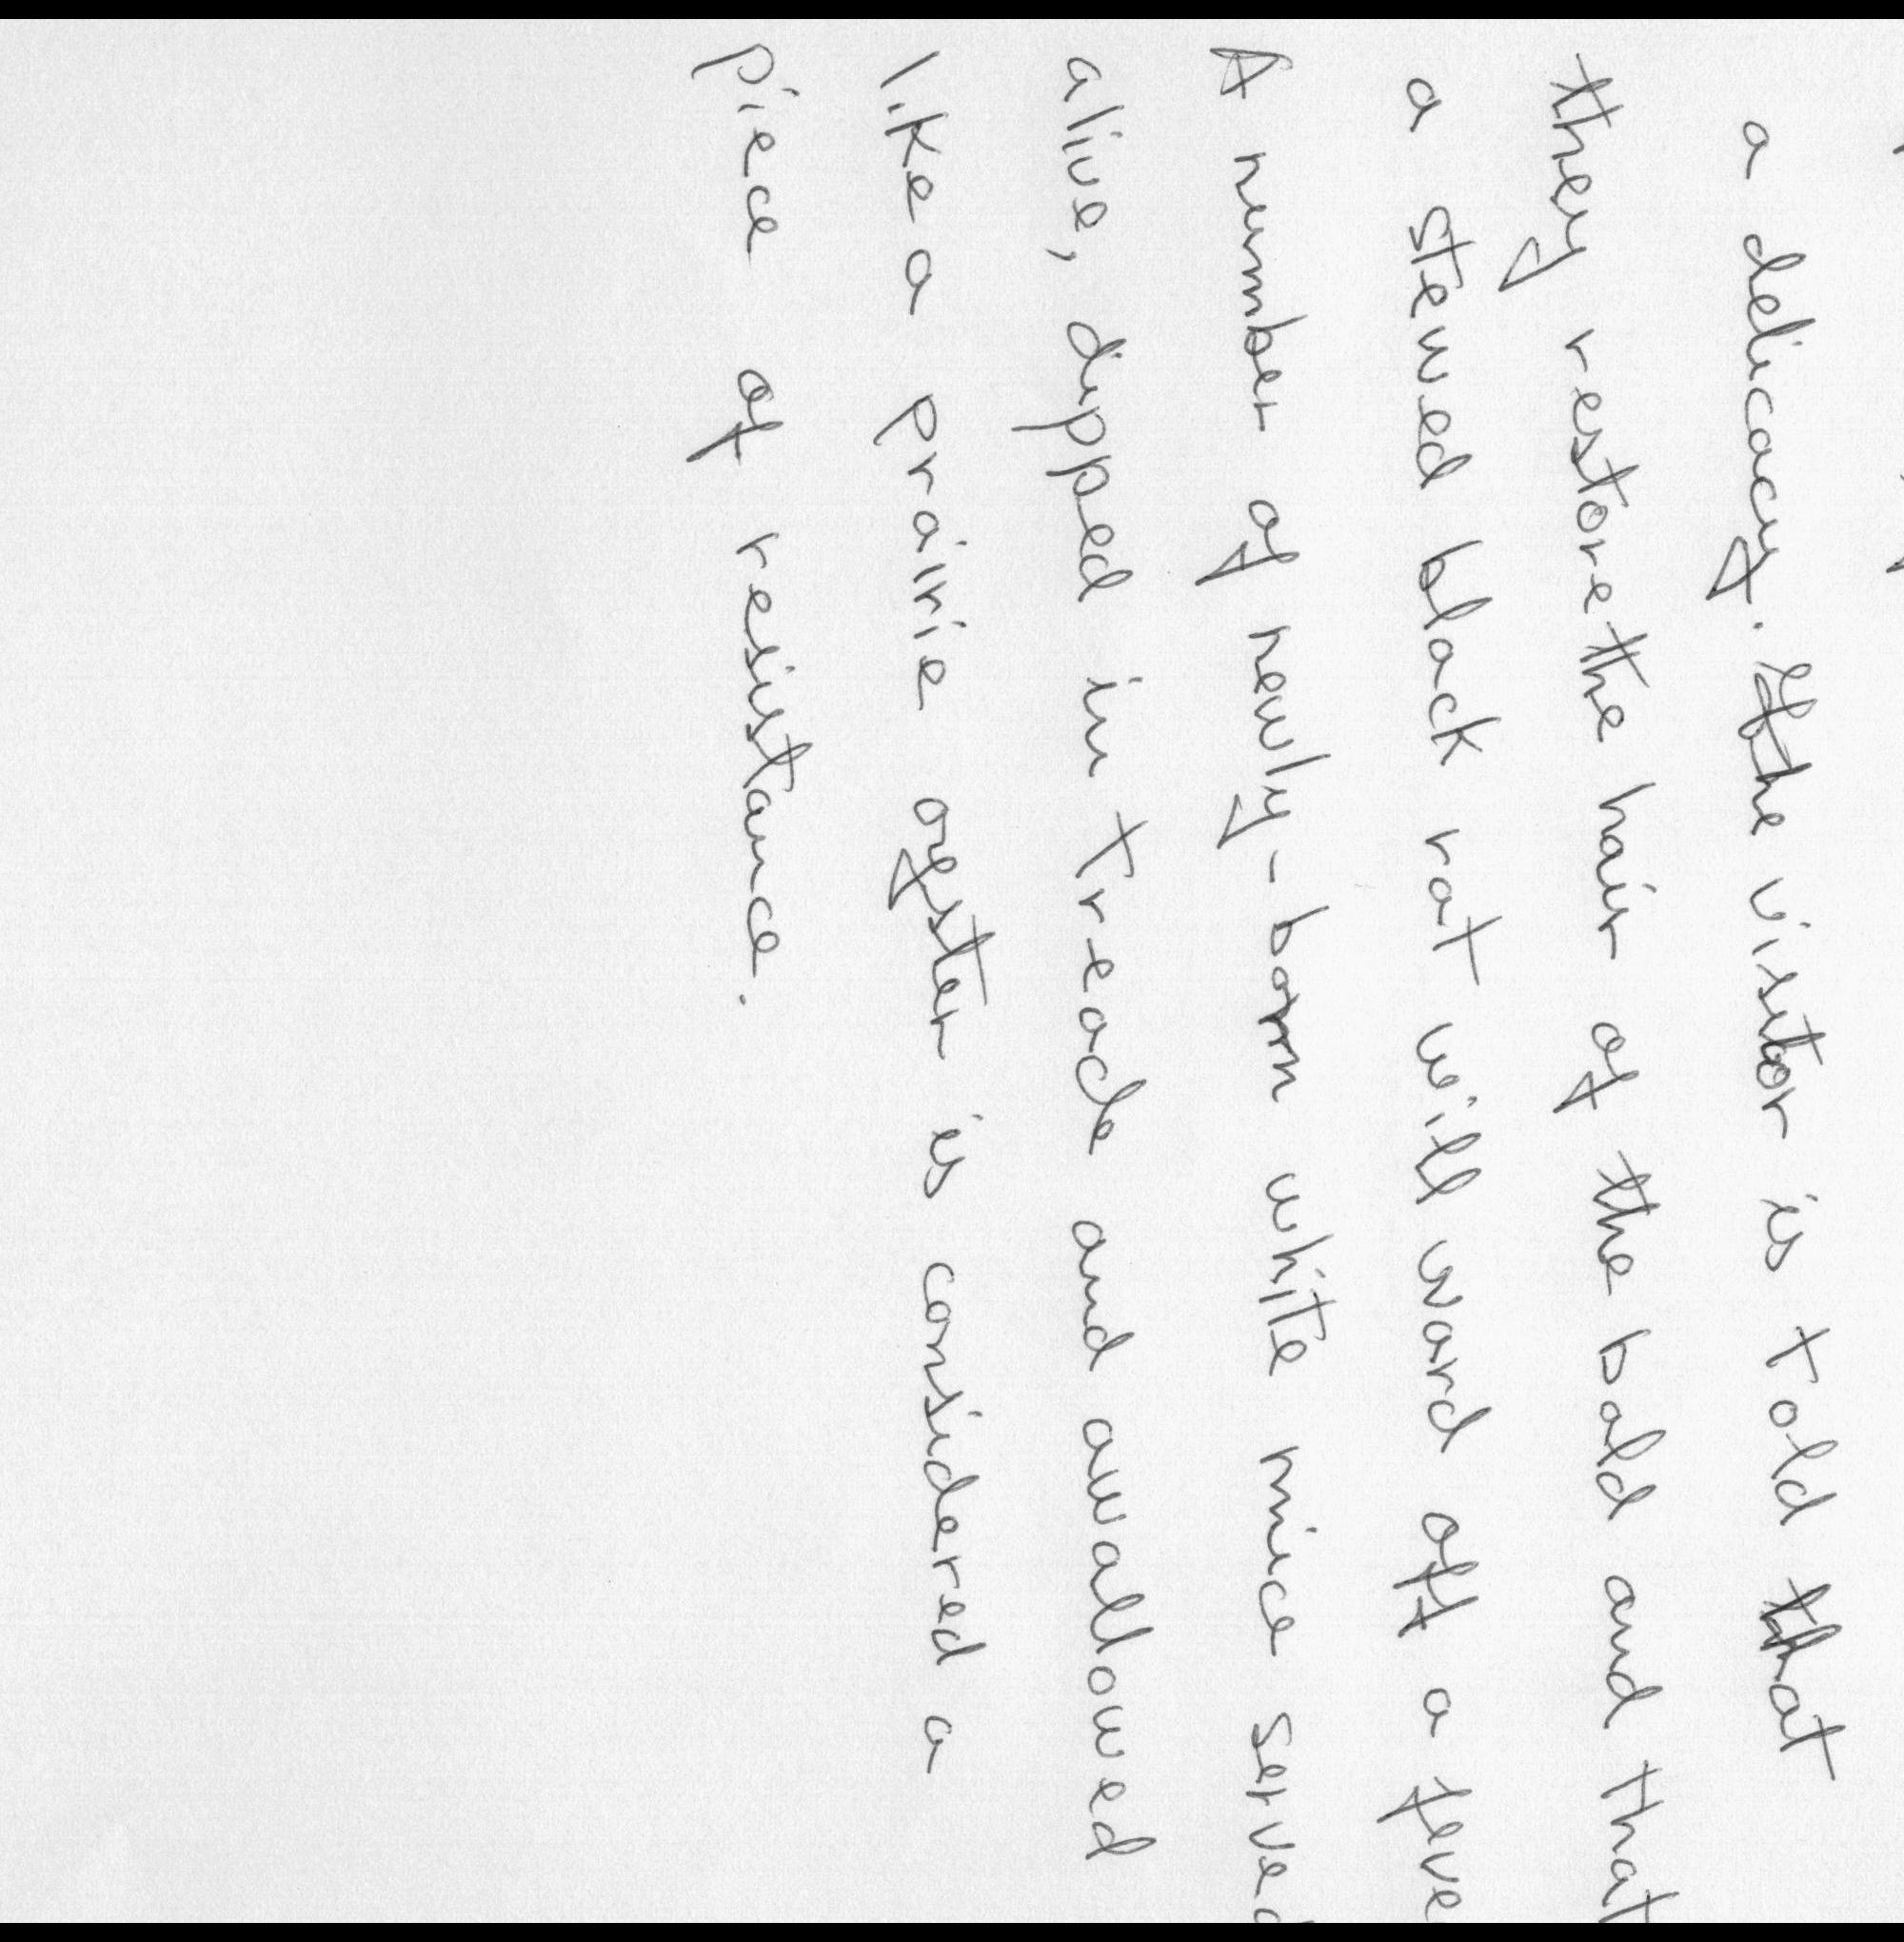 a delicacy. If the visitor is told that
they restore the hair of the bald and that
a stewed black rat will ward off a feve
A number of newly-born white mice served
alive, dipped in treacle and awallowed
like a prairie oyster is considered a
piece of resistance.